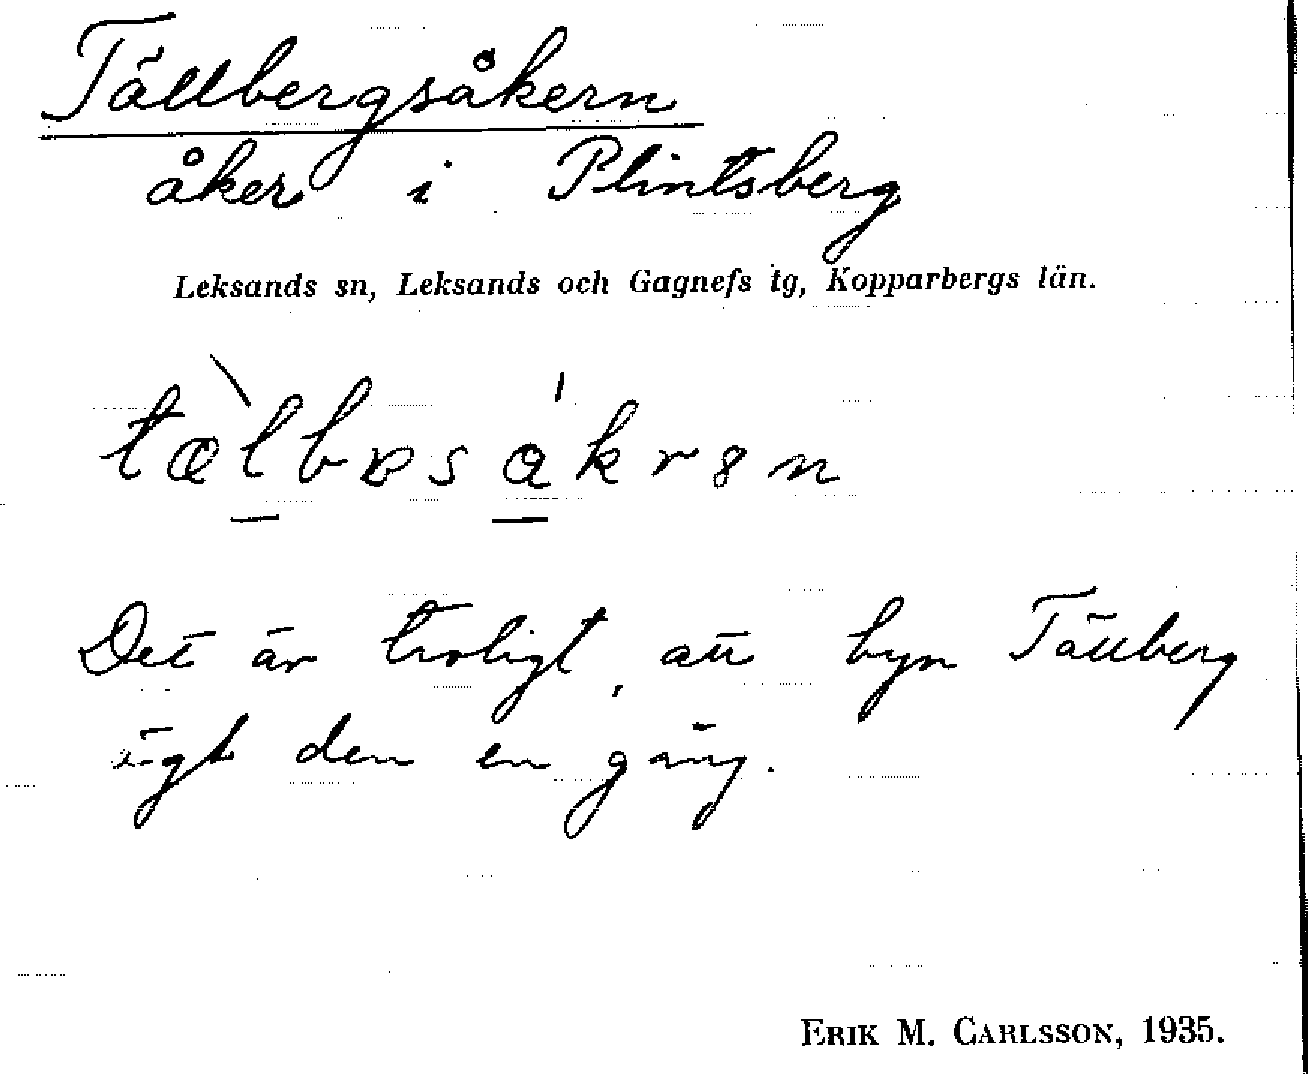 Tällbergsåkern
åker i Plintsberg
Leksands sn, Leksands och Gagnefs tg, Kopparbergs län.
tæ̀lbɐsákrən
Det är troligt, att byn Tällberg
ägt den en gång.
ERIK M. CARLSSON, 1935.